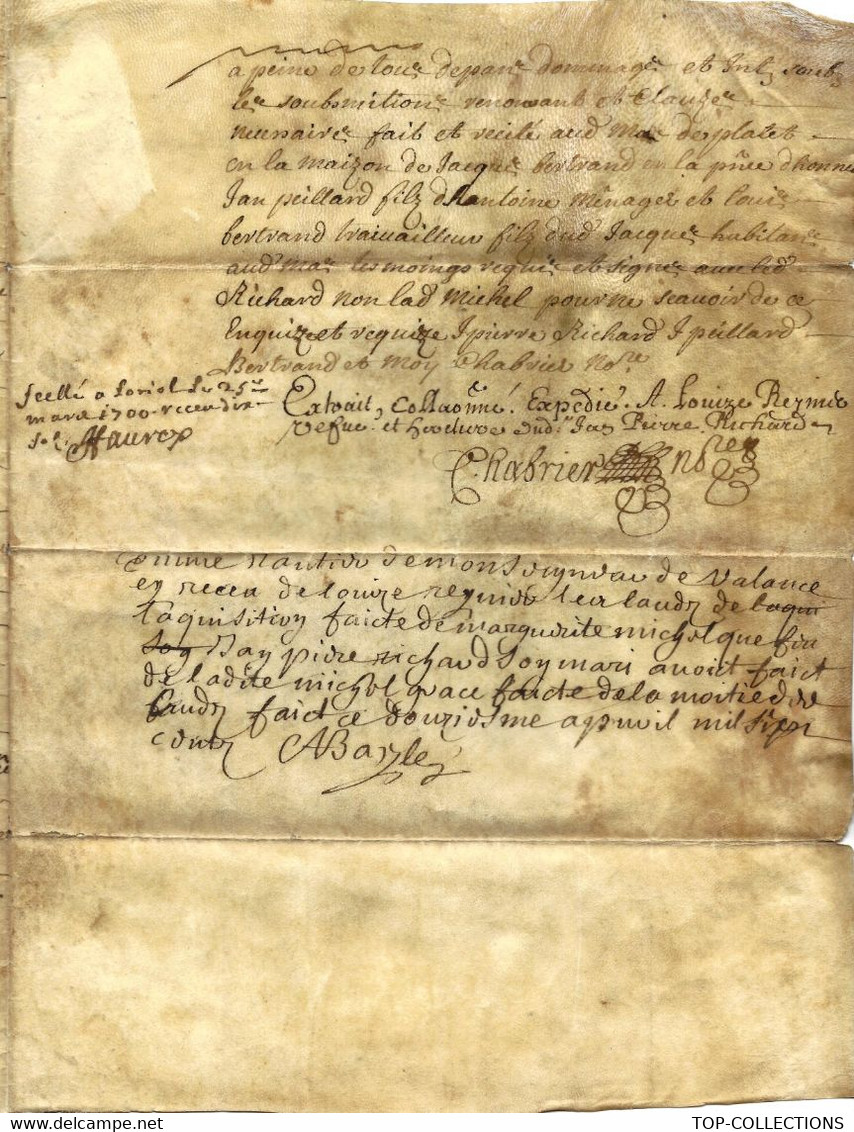 a peine de tous depans dommages et Int. soubz
les soubmitions renonsant et clauzes
necessaires fait et recité aud mas de platet
en la maizon de Jacques bertrand en la pnce dhonnes
Jan peillard filz dhantoine ménager et louis
bertrand travailleur filz dud Jacques habitans
aud mas tesmoings requis et signés avec led
Richard non lad Michel pour ne scavoir de ce
Enquize et requize J pierre Richard J peillard
Bertrand et Moy Chabrier Nore
scellé a Loriol le 25me
mars 1700
Extrait, Collaonné. Expedié. A. Louize Reynier
vefue et heoditere dud. Jan Pierre Richard
Chabrier nore
de monseigneur de Valance
ey receu de louize reynier les laudz de
laquisition faicte de marguerite michel que feu
Jan piere richard son mari avoit faict
de ladite michel grace faicte de la moitie des
laudz faict ce douziesme apvril mil sept
centz ABayle
TOP-COLLECTIONS